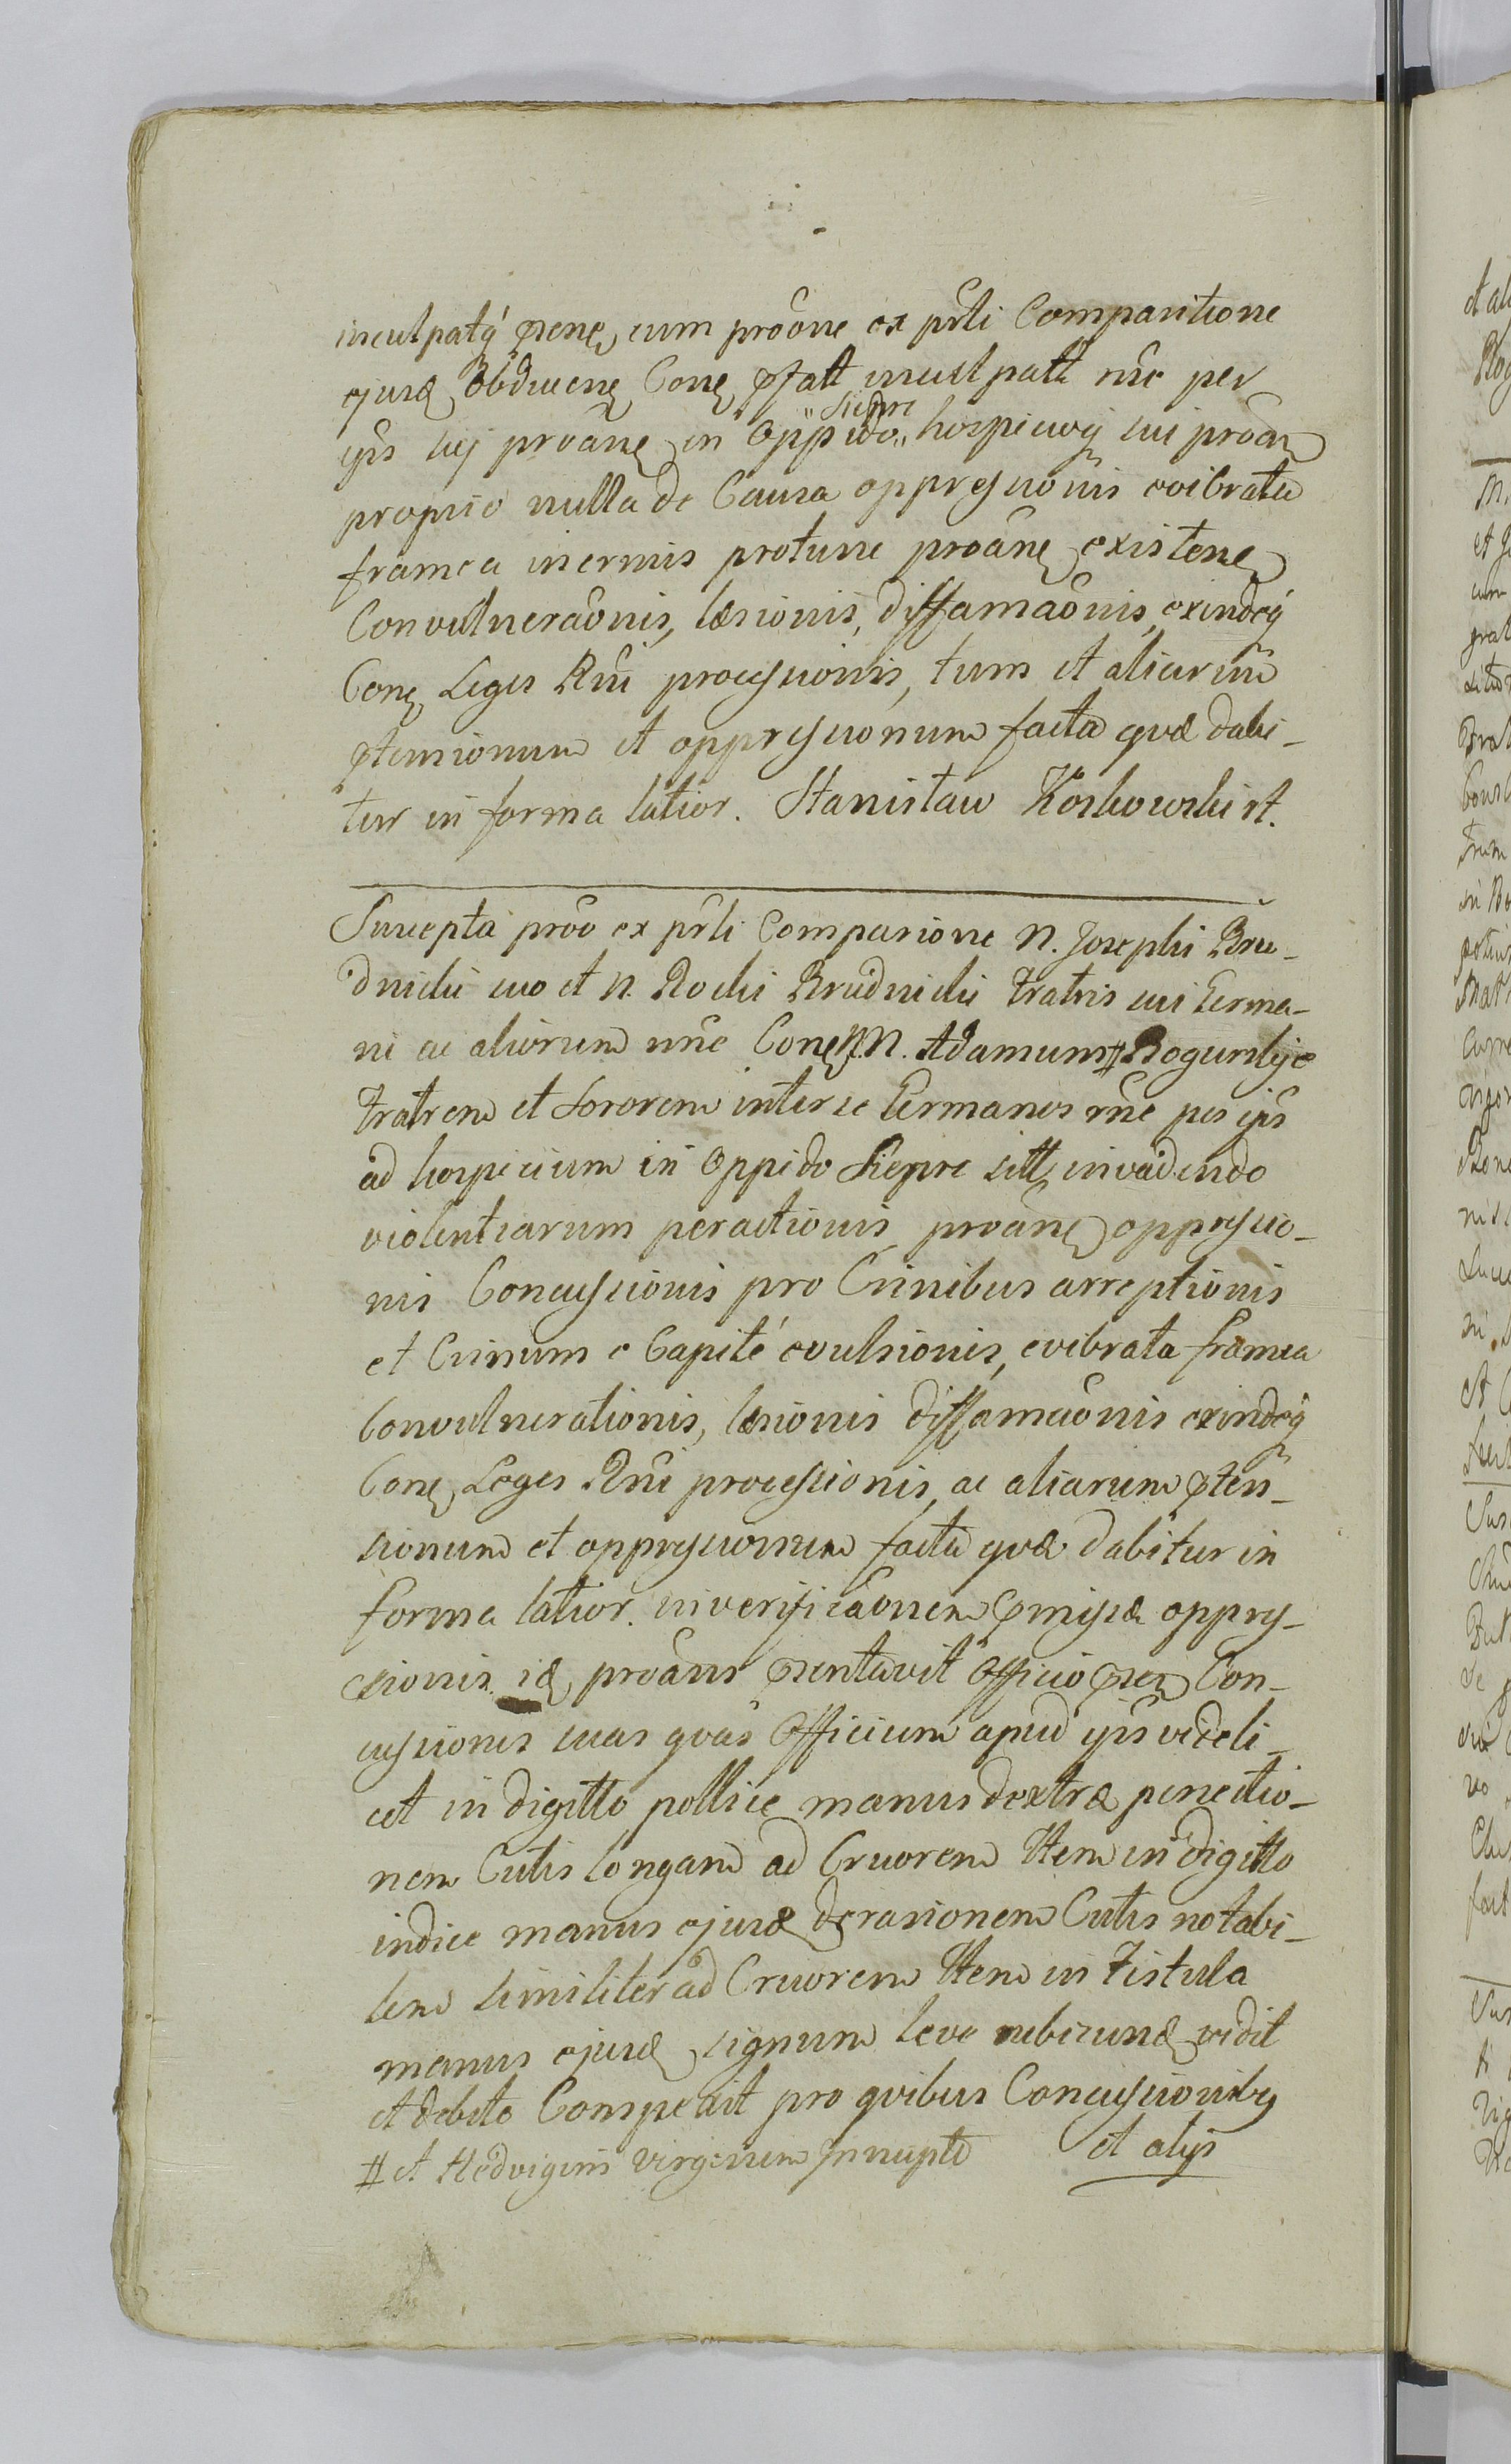 inculpatq́ pnẽ cum proõne ex prłi Comparitione
ejusd Obducenẽ Conẽ pfatt inculpatt rñe per
ip̃s sụj proãnẽ in Oppido " Sieprc " hospicioq̨ sui proãn
proprio nulla de Causa oppressionis evibrata
framea inermis protunc proãnẽ existenẽ
Convulneraõnis, læsionis, diffamaõnis, exindeq́
Conẽ Leges Rñi processionis, tum et aliarum
ptensionum et oppressionum facta quæ dabi-
tur in forma latior. Stanisław Koskowski st.
Suscepta proõ ex prłi Comparisione N. Josephi Bru-
dnicki suo et N. Rochi Brudnicki Fratris sui Germa-
ni ac aliorum nñe Conẽ N.N. Adamum # Bogurskje
Fratrem et Sororem inter se Germanos rñe per ip̃s
ad hospicium in Oppido Sieprc sitt invadendo
violentiarum peractionis, proãnẽ oppressio-
nis Concussionis pro Crinibus arreptionis
et Crinum e Capite evulsionis, evibrata framea
Convulnerationis, læsionis diffamaõnis exindeq́
Conẽ Leges Rñi processionis, ac aliarum pten-
sionum et oppressionum facta quæ dabitur in
forma latior. in verificaõnem pmissæ oppres-
sionis id proãns psentavit Officio psen Con-
cussiones suas quas Officium apud ip̃s videli-
cet in digitto pollice manus dextræ penectio-
nem Cutis longam ad Cruorem Item in digitto
indice manus ejusd derasionem Cutis notabi-
lem similiter ad Cruorem Item in Fistula
manus ejusd signum leve rubicund vidit
et debite Conspexit pro quibus Concussionibq
# et Hedvigim Virginem Innupte et alijs